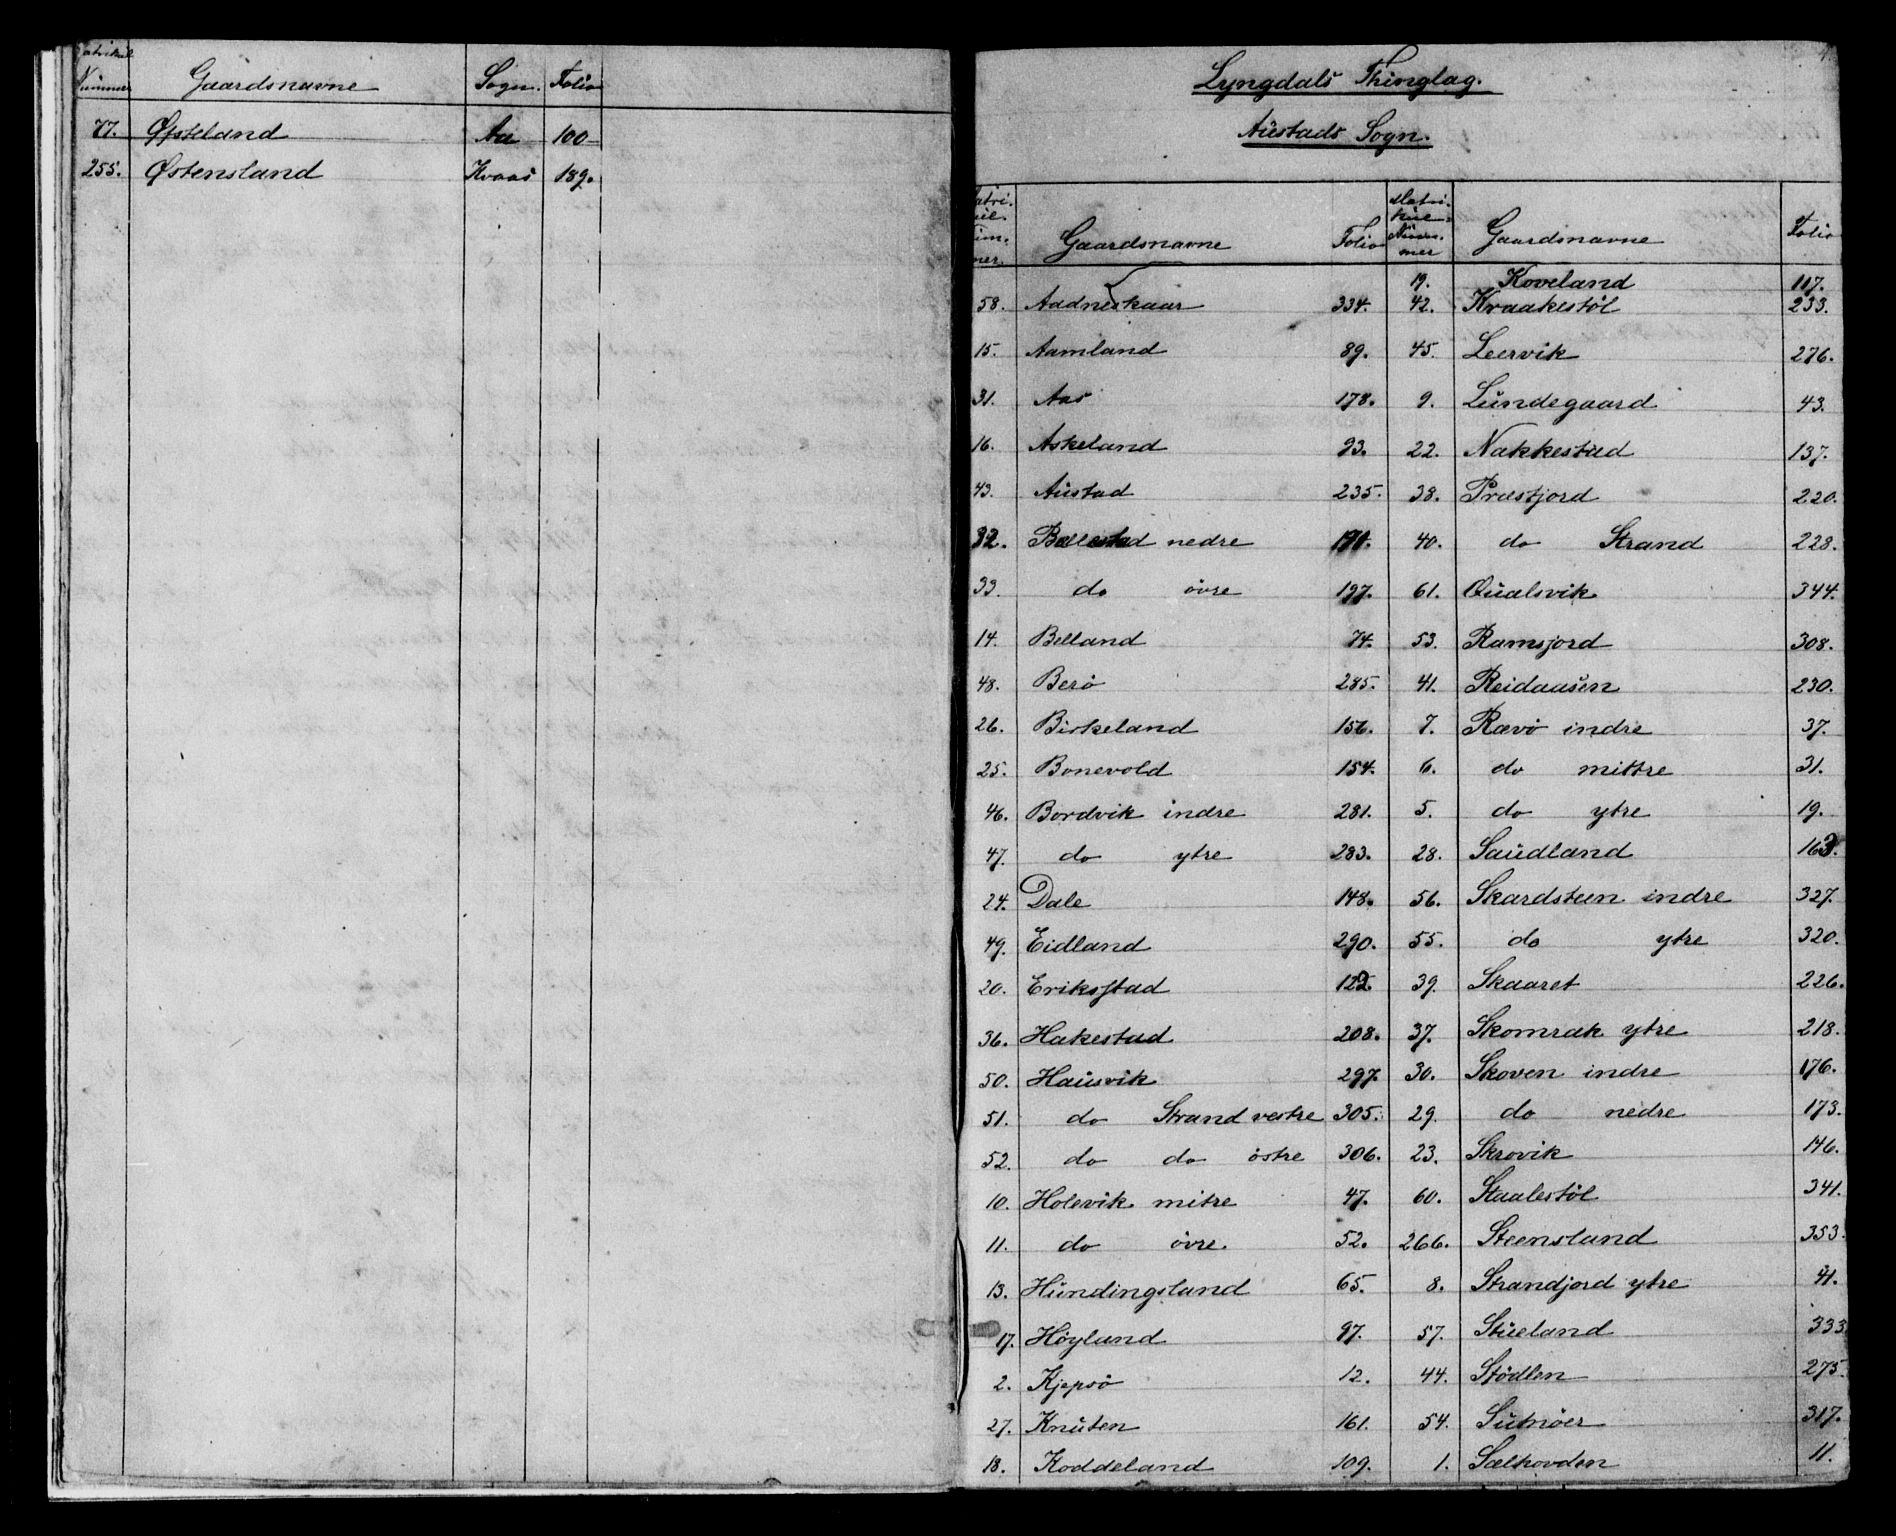 Matrikul Nummer Gaardsnavne Sogn. Folio
77. Øfsteland Aa 100
255. Østensland Kvaas 189.
Lyngdals Thinglag.
Austads Sogn.
Matrikul Nummer. Gaardsnavne Folio Matrikul Nummer Gaardsnavne Folio
19. Koveland 117.
58. Aadneskaar 334. 42. Kraakestøl 233.
15. Aamland 89. 45. Leervik 276.
31. Aas 178. 9. Lundegaard 43.
16. Askeland 93. 22. Nakkestad 137.
43. Austad 235. 38. Præstjord 220.
32. Ballestad nedre 190. 40. do Strand 228.
33. do övre 197. 61. Qualsvik 344.
14. Belland 74. 53. Ramsjord 308.
48. Berö 285. 41. Reidaasen 230.
26. Birkeland 156. 7. Rævö indre 37.
25. Bonevold 154. 6. do mittre 31.
46. Bordvik indre 281. 5. do ytre 19.
47. do ytre 283. 28. Saudland 163.
24. Dale 148. 56. Skardsteen indre 327.
49. Eidland 290. 55. do ytre 320.
20. Eriksstad 122. 39. Skaaret 226.
36. Hakestad 208. 37. Skomrak ytre 218.
50. Hausvik 297. 30. Skoven indre 176.
51. do Strand vestre 305. 29. do nedre 173.
52. do do östre 306. 23. Skrovik 146.
10. Holevik mitre 47. 60. Staalestöl 341.
11. do övre. 52. 266. Steensland 353.
13. Hundingsland 65. 8. Strandjord ytre 41.
17. Høyland 97. 57. Stueland 333
2. Kjepsö 12. 44. Stödlen 275.
27. Knuten 161. 54. Sutnöer 317.
18. Koddeland 109. 1. Sælhovden 11.